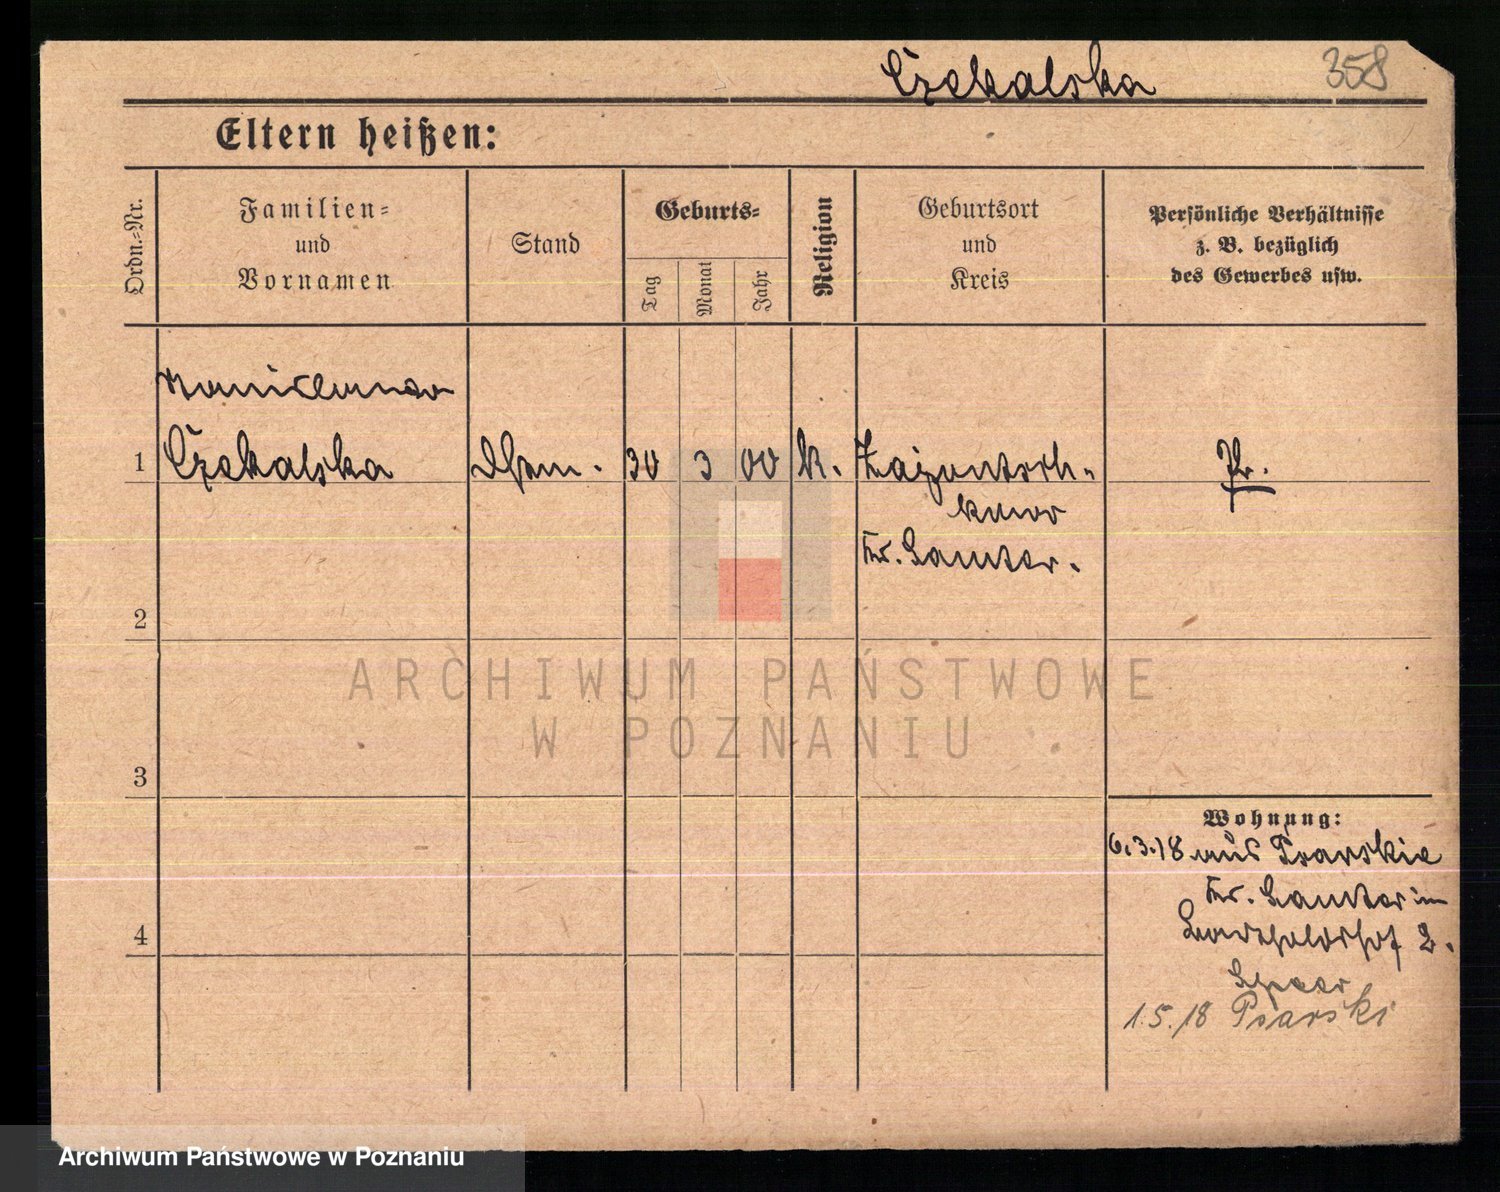 Czekalska 358
Eltern heißen:
Ordn.-Nr.
Familien-
und
Vornamen
Stand
Geburts-
Tag
Monat
Jahr
Religion
Geburtsort
und
Kreis
Persönliche Verhältnisse
z. B. bezüglich
des Gewerbes usw.
1 Czekalska 30 3 00 k. Pr.
Kr. Samter.
2
ARCHIWUM PAŃSTWOWE
W POZNANIU
3
Wohnung:
6.3.18 aus Psarskie
Kr. Samter im
4
1.5.18 Psarski
Archiwum Państwowe w Poznaniu